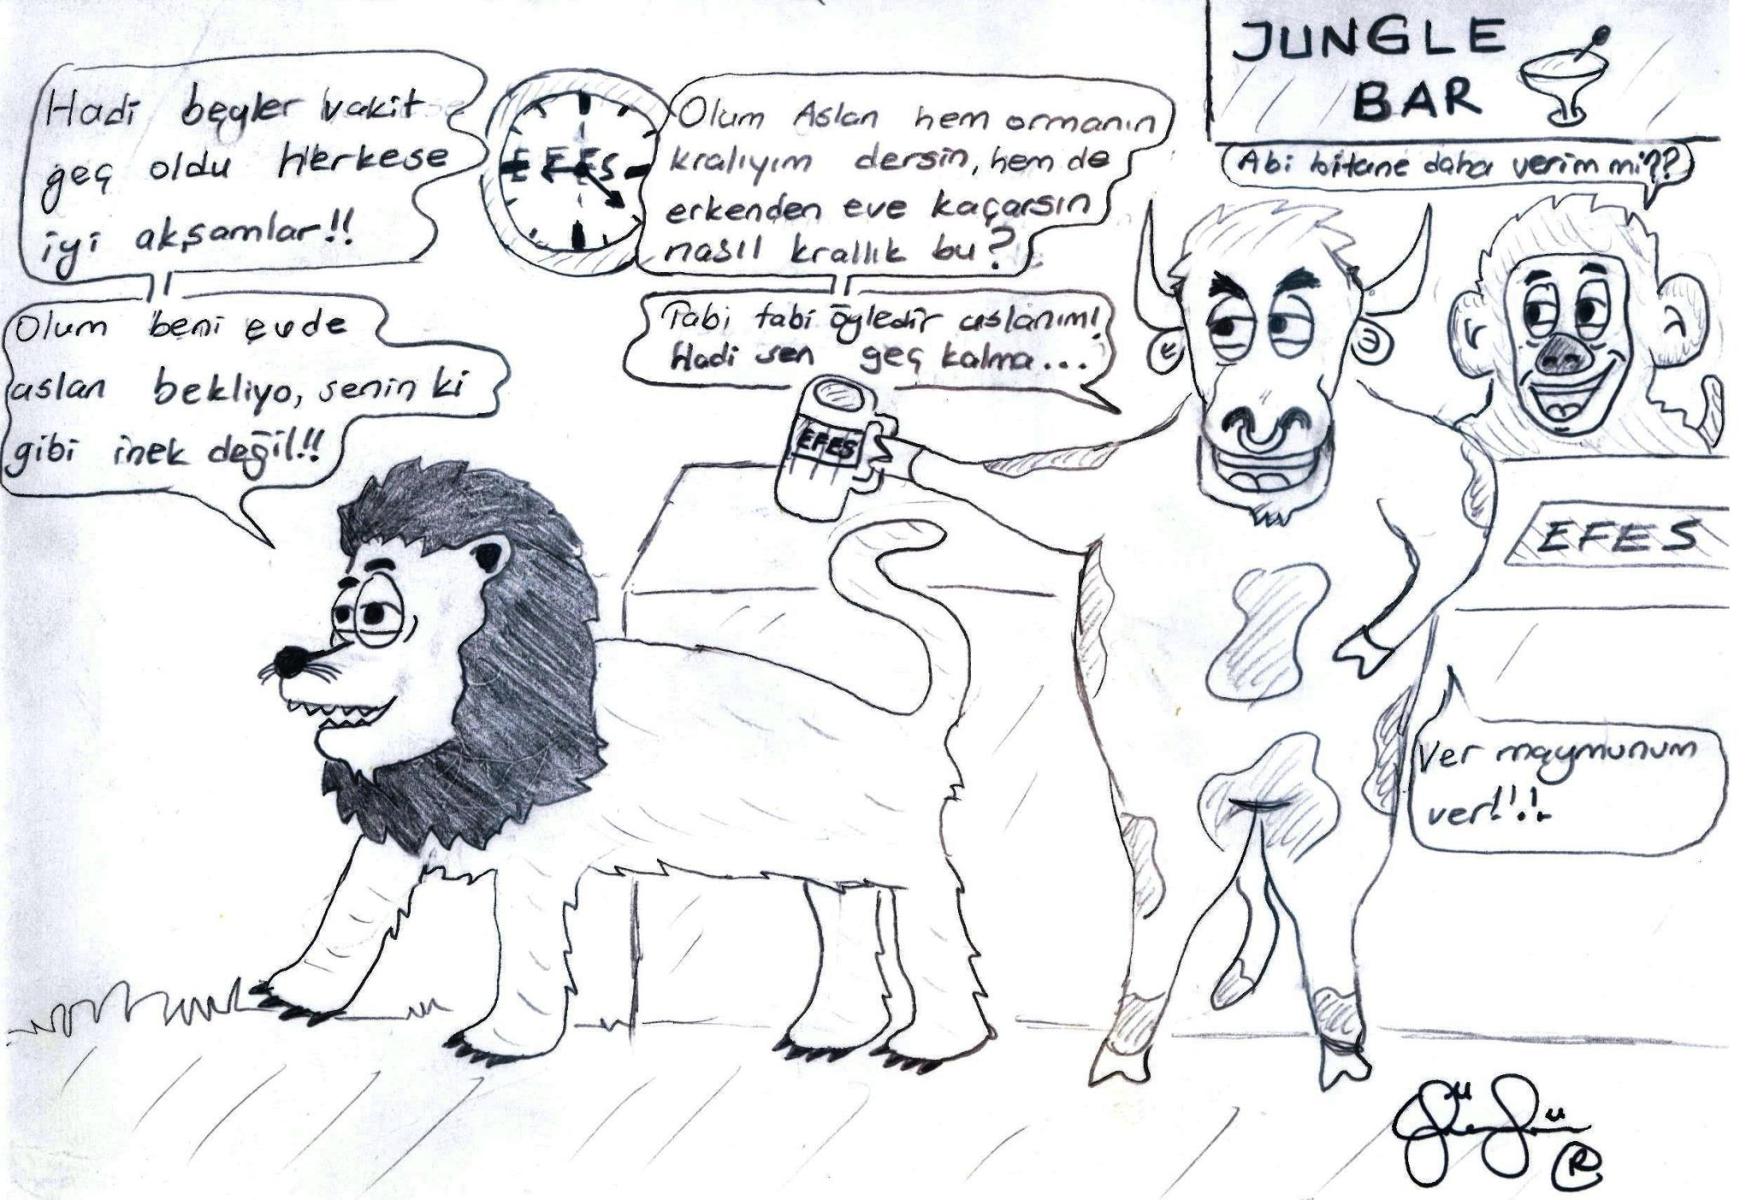 JUNGLE
BAR
Hadi beyler vakit
geç oldu Herkese
iyi akşamlar!!
EFES
Olum Aslan hem ormanın
kralıyım dersin, hem de
erkenden eve kaçarsın
nasıl krallık bu?
Abi bitane daha verim mi??
Olum beni evde
aslan bekliyo, senin ki
gibi inek değil!!
Tabi tabi öyledir aslanım!
Hadi sen geç kalma...
EFES
EFES
Ver maymunum
ver!!!